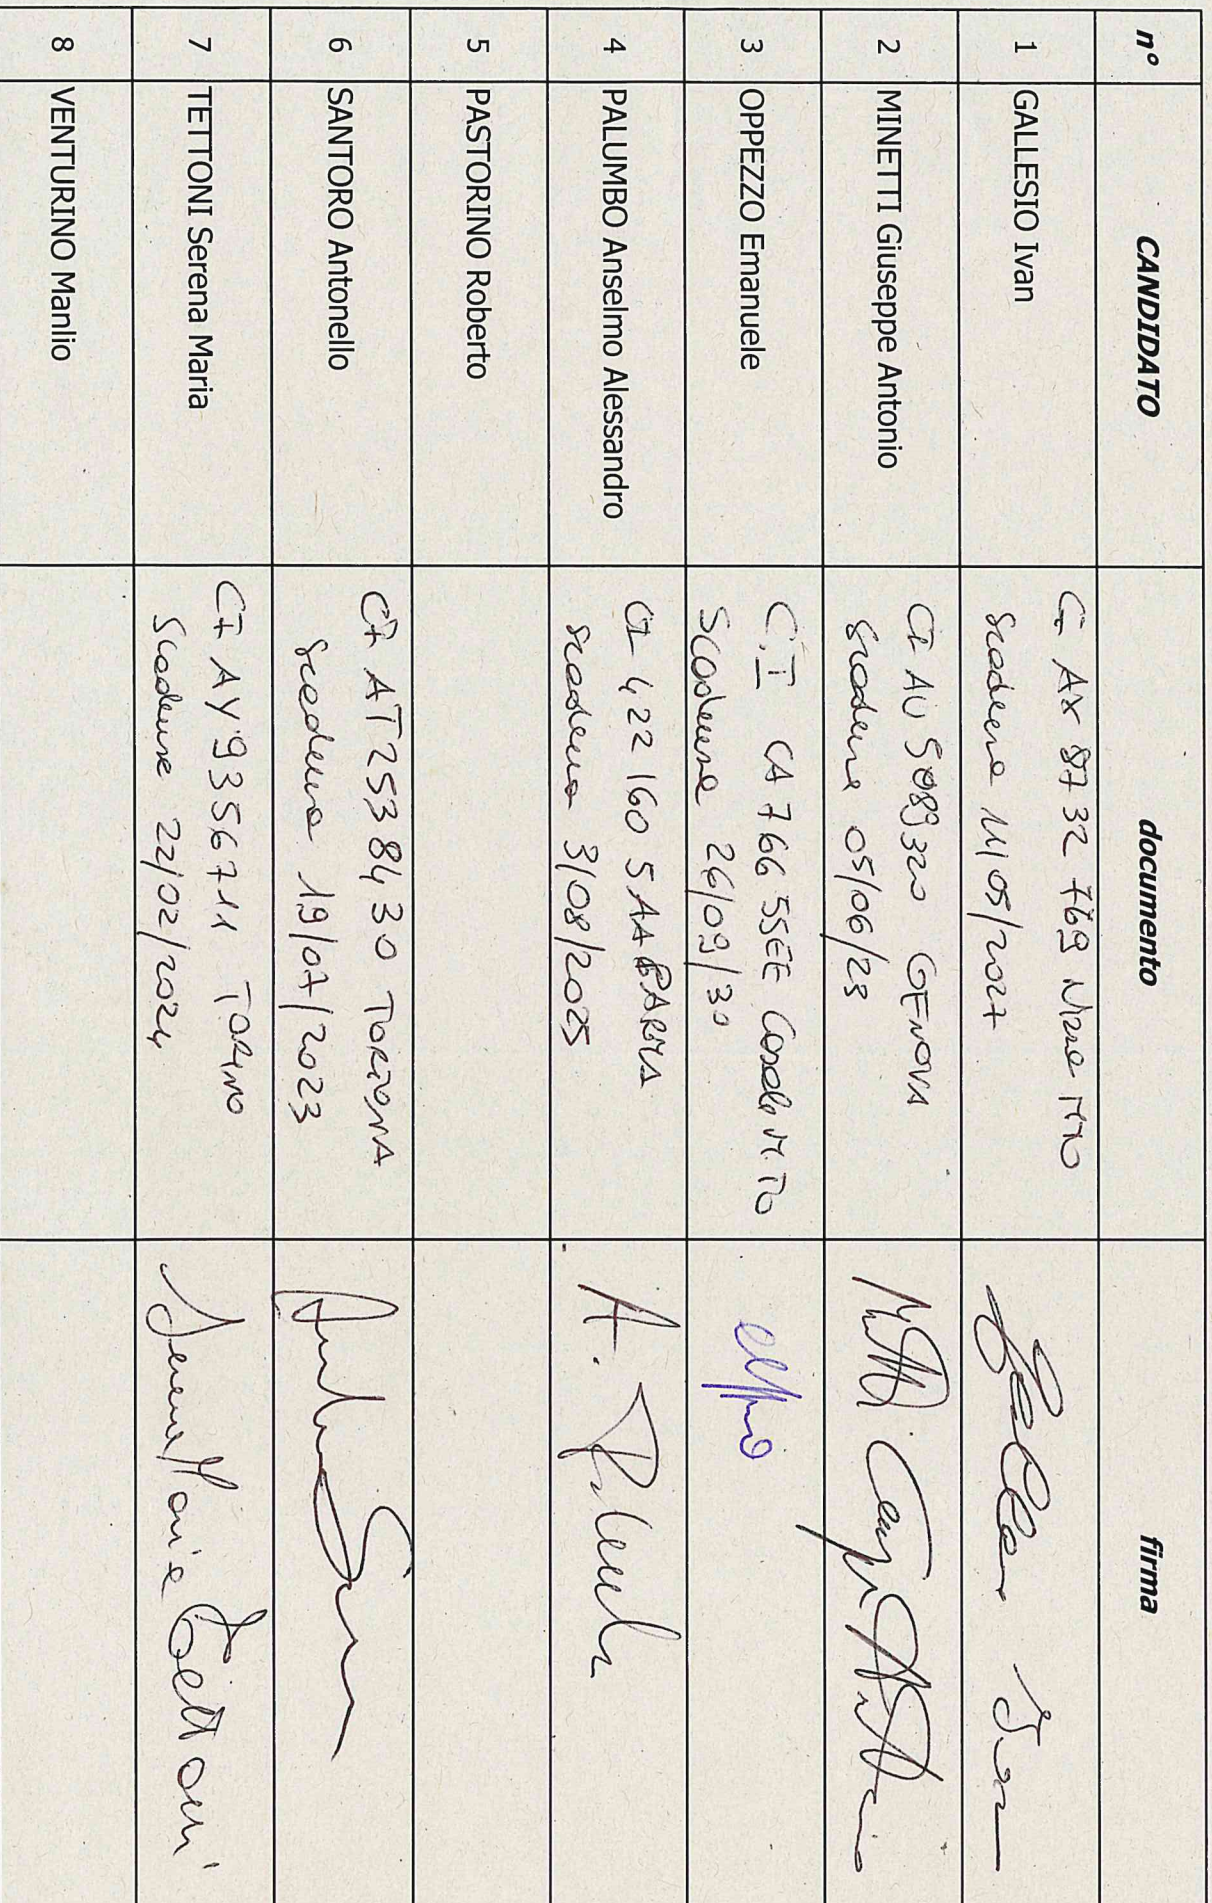 n° CANDIDATO documento firma
1 GALLESIO Ivan
CI AX 8732769 Nizza M.TO
scadenza 11/05/2027
2 MINETTI Giuseppe Antonio
CI AU 5089320 GENOVA
scadenza 05/06/23
3 OPPEZZO Emanuele
C.I CA 766 55EE Casale M.TO
Scadenza 26/09/30
4 PALUMBO Anselmo Alessandro
CI 422 160 5 AA PARMA
scadenza 3/08/2025
A. Palumbo
5 PASTORINO Roberto
6 SANTORO Antonello
CI AT 2538430 TORTONA
scadenza 19/07/2023
7 TETTONI Serena Maria
CI AY 9356711 TORINO
Scadenza 22/02/2024
Serena Maria Tettoni
8 VENTURINO Manlio